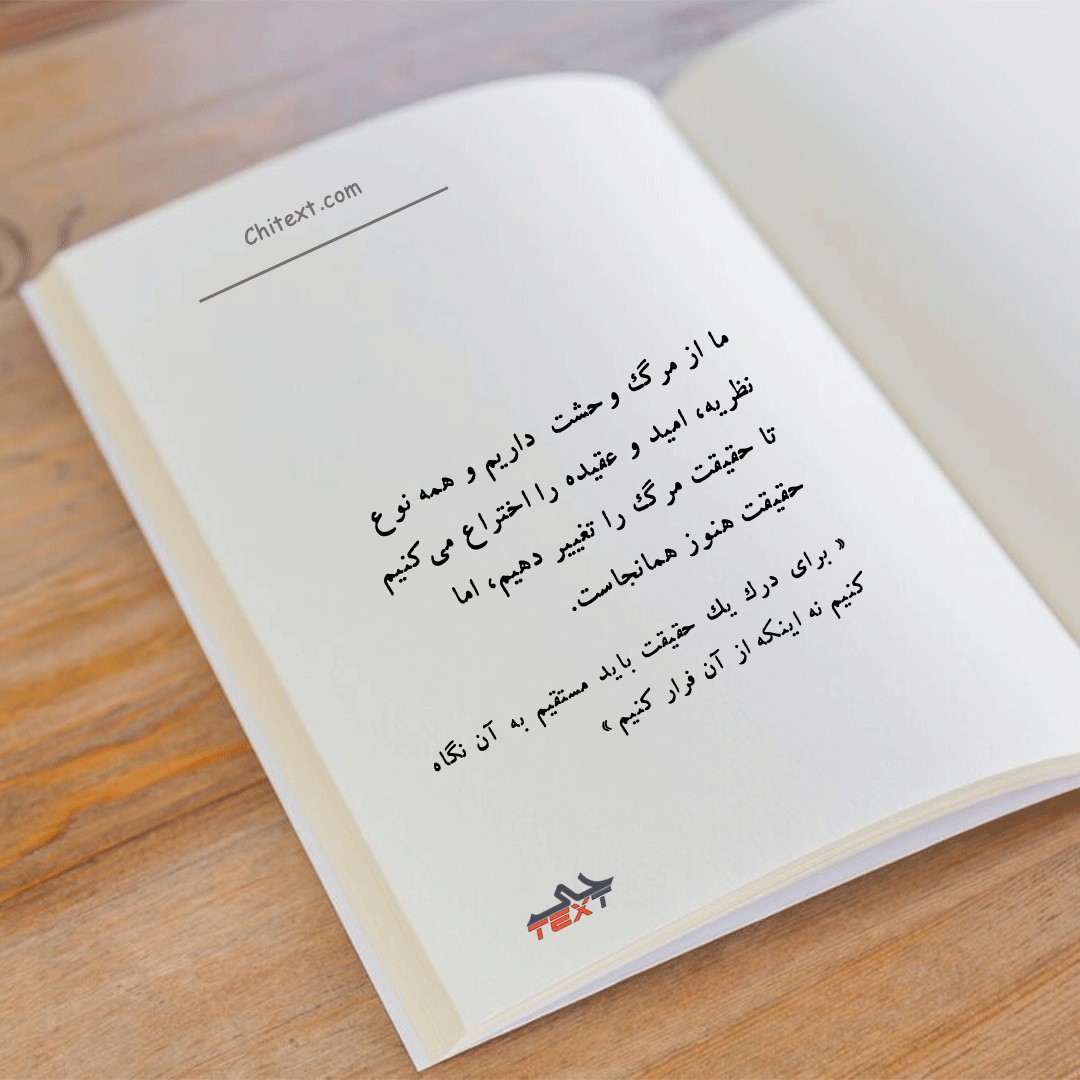 Chitext.com
ما از مرگ وحشت داریم و همه نوع
نظریه، امید و عقیده را اختراع می کنیم
تا حقیقت مرگ را تغییر دهیم، اما
حقیقت هنوز همانجاست.
« برای درك یك حقیقت باید مستقیم به آن نگاه
کنیم نه اینکه از آن فرار کنیم »
چی
TEXT